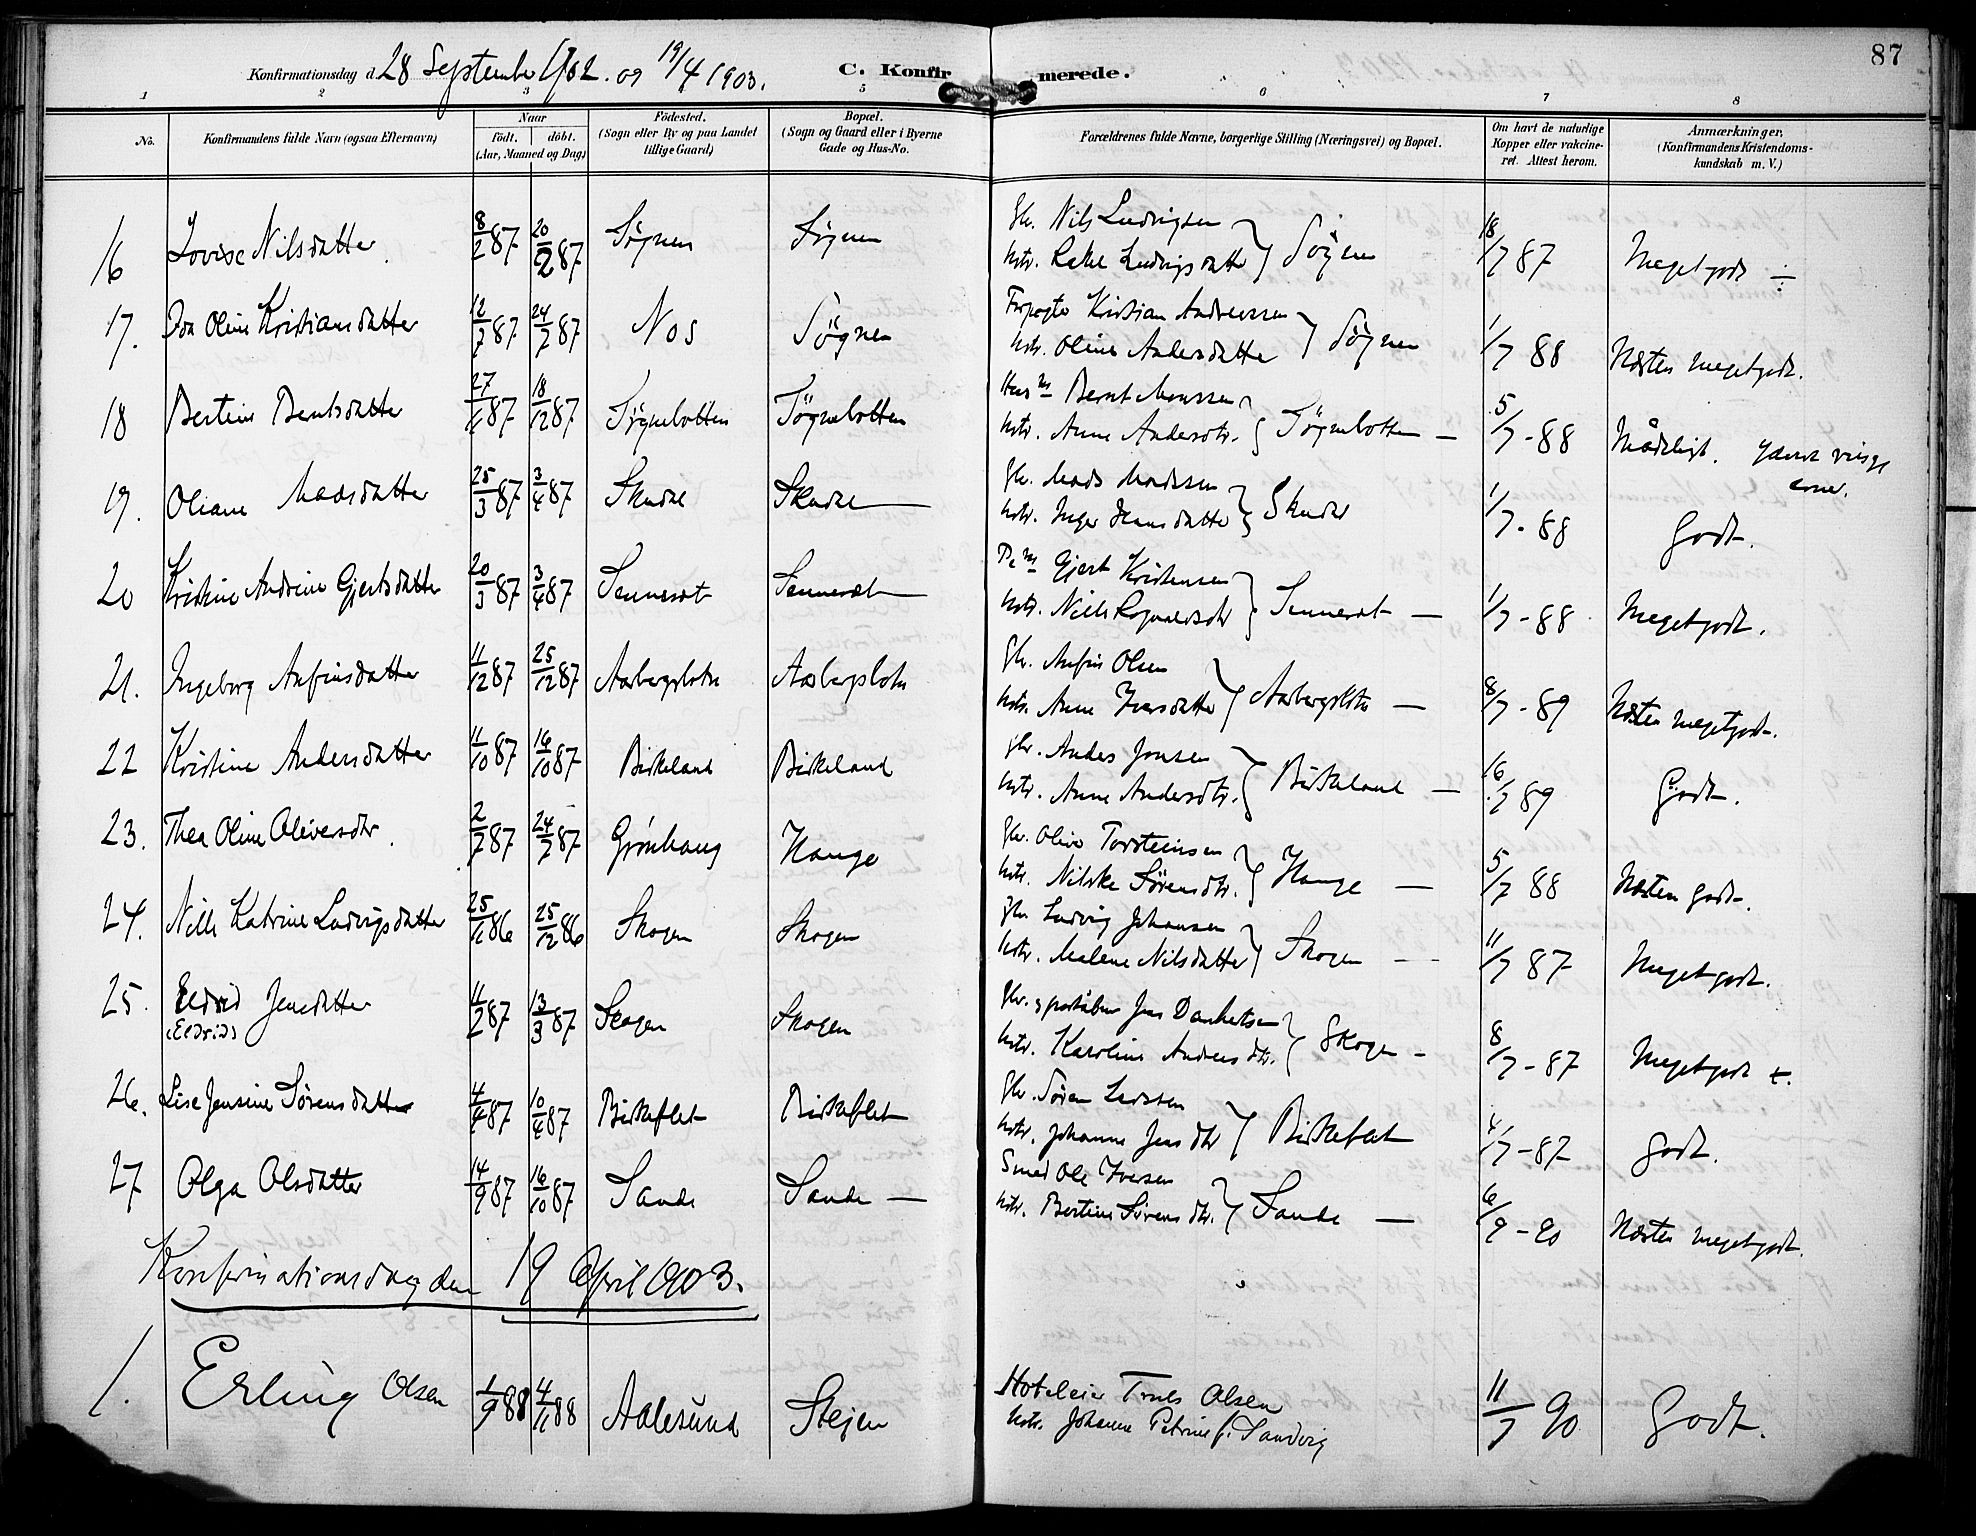 87
Konfirmationsdag d. 28 September 1902. og 19/4 1903. C. Konfirmerede.
1 2 3 5 6 7 8
No. Konfirmandens fulde Navn (ogsaa Efternavn) Naar født. døbt. (Aar, Maaned og Dag) Fødested. (Sogn eller By og paa Landet tillige Gaard) Bopæl. (Sogn og Gaard eller i Byerne Gade og Hus-No. Forældrenes fulde Navne, borgerlige Stilling (Næringsvei) og Bopæl. Om havt de naturlige Kopper eller vakcineret. Attest herom. Anmærkninger, (Konfirmandens Kristendomskundskab m. V.)
16 Lovise Nilsdatter. 8/2 87 20/2 87 Søgnen Søgnen Gbr. Nils Ludvigsen Kstr. Rakel Ludvigsdatter } Søgnen 18/7 87 Meget godt ÷
17. Ida Oline Kristiansdatter 12/7 87 24/7 87 Nos Søgnen Kristian Andreassen Kstr. Oline Andersdatter } Søgnen 1/7 88 Næsten meget godt.
18 Bertine Berntsdatter 27/11 87 18/12 87 Søgnebotten Søgnebotten Husm Bernt Monssen Kstr. Anne Andersdtr. } Søgnebotten — 5/7 - 88 Mådeligt.
19. Oliane Madsdatter 25/3 87 3/4 87 Skudal Skudal — Gbr. Mads Madssen Kstr. Inger Hansdatter } Skudal 1/7 - 88 Godt.
20 Kristine Andrine Gjertsdatter 20/3 87 3/4 87 Sunnerøt Sunnerøt — Gjert Kristensen } Sunnerøt — 1/7 - 88 Meget godt.
21. Ingeborg Anfinsdatter 11/12 87 25/12 87 Aarbergsloten Aarbergsloten Gbr. Anfin Olsen Kstr. Anne Iversdatter } Aarbergsloten — 8/7 - 89 Næsten meget godt.
22 Kristine Andersdatter 11/10 87 16/10 87 Birkeland Birkeland Gbr. Anders Jonsen Kstr. Anne Andersdtr. } Birkeland — 16/7 89 Godt.
23. Thea Oline Oliversdtr. 2/7 87 24/7 87 Grønhaug Hauge Gbr. Oliver Torsteinsen Kstr. Nilske Sørensdtr. } Hauge — 5/7 88 Næsten godt.
24. Nille Katrine Ludvigsdatter 25/11 86 25/12 86 Skogen Skogen Gbr. Ludvig Johansen Kstr. Malene Nilsdatter } Skogen — 11/7 87 Meget godt.
25. Eldrid Jensdatter (Eldrid) 11/2 87 13/3 87 Skogen Skogen Gbr. Jens Kstr. Karoline Andreasdtr. } Skogen - 8/7 - 87 Meget godt +.
26. Lise Jensine Sørensdatter 4/4 87 10/4 87 Birkeflet Birkeflet Gbr. Søren Larssen Kstr. Johanne Jensdtr } Birkeflet 4/7 - 87 Godt.
27 Olga Olsdatter 14/9 87 16/10 87 Sande Sande — Smed Ole Iversen Kstr. Bertine Sørensdtr. } Sande — 6/9 - 90 Næsten meget godt.
Konfirmationsdag den 19 April 1903.
1. Erling Olsen 1/9 88 4/11 88 Aalesund Stejen Hoteleier Truls Olsen Kstr. Johanne Petrine f. Sandvig 11/7 90 Godt.